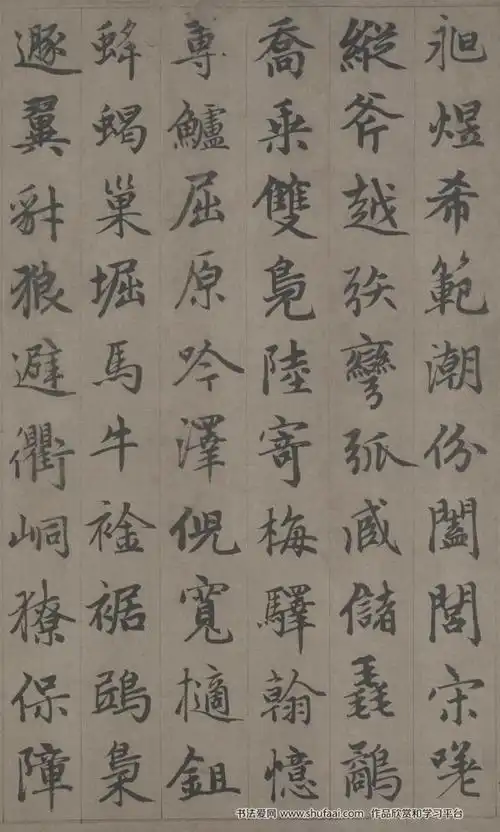 昶煜希範潮份闔閭宋
縱斧越彎弧臧儲
喬乘雙鳧陸寄梅驛翰憶
專鱸屈原吟澤倪寬樀鉏
蜂蝎巢堀馬牛裾鴟梟
遯翼豺狼避衢峒獠保障
书法爱网 www.shufaai.com 作品欣赏和学习平台